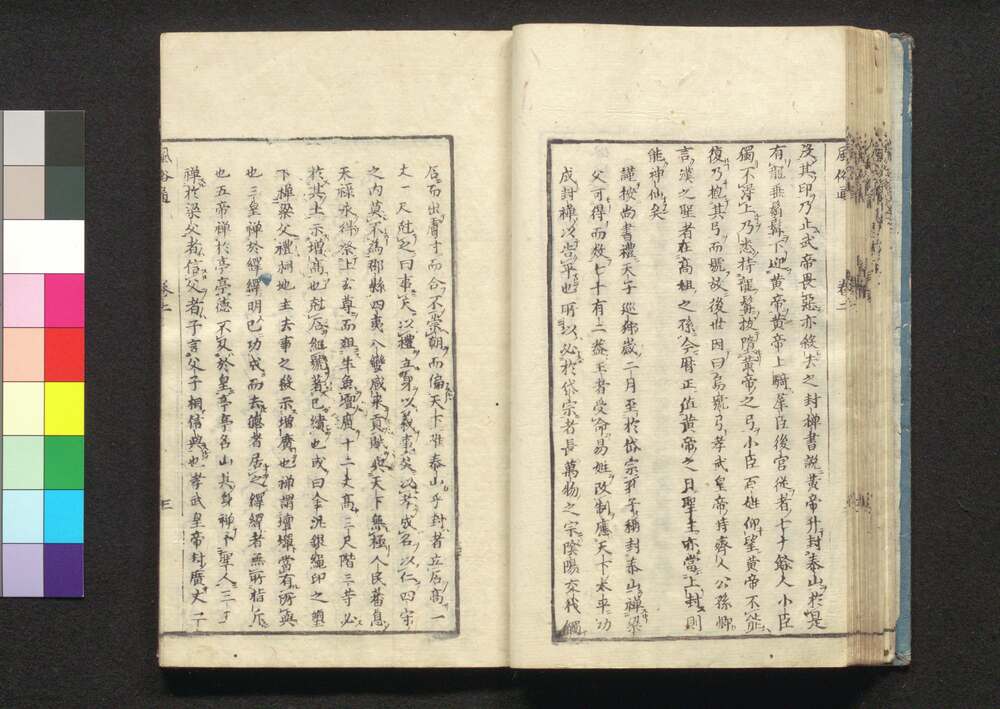 風俗通　卷二
没其印乃止武帝畏惡亦殺去之封禅書說黄帝升封泰山於是
有龍垂胡髯下迎黄帝黄帝上騎羣臣後宮從者七十餘人小臣
獨不得上乃悉持龍髯拔墮黄帝之弓小臣百姓仰望黄帝不能
復乃抱其弓而號故後世因曰烏號弓孝武皇帝時齊人公孫卿
言漢之聖者在高祖之孫今曆正值黄帝之日聖主亦當上封則
能神仙矣
謹按尚書禮天子巡狩歲二月至於岱宗孔子稱封泰山禅梁
父可得而数七十有二蓋王者受命易姓改制應天下太平功
成封禅以告平也所以必於岱宗者長萬物之宗陰陽交代觸
石而出膚寸而合不崇朝而徧天下唯泰山乎封者立石高一
丈一尺尅之曰事天以禮立身以義事父以孝成名以仁四守
之内莫不為郡縣四夷八蠻咸来貢職與天下無極人民蕃息
天禄永得祭上玄尊而俎生魚壇廣十二丈高三尺階三等必
於其上示增高也尅石紀號著已績也或曰金泥銀繩印之璽
下禅梁父禮祠地主去事之殺示增廣也禅謂壇墠當有所與
也三皇禅於繹繹明已功成而去德者居之繹繹者無所指斥
也五帝禅於亭亭德不及於皇亭亭名山其身禅予聖人三王
禅於梁父者信父者子言父子相信與也孝武皇帝封廣丈二
風俗通　卷二　三